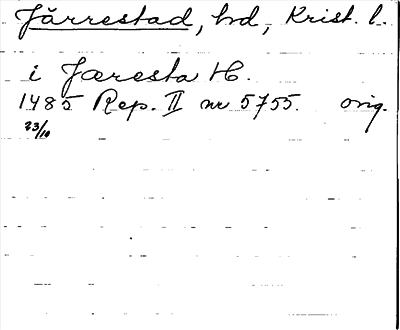 Järrestad, hd, Krist. l.
i Jæresta H.
1485 Rep. II nr 5755. orig.
23/10